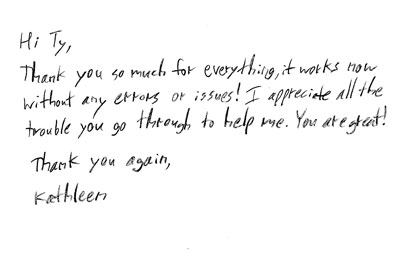 Hi Ty,
Thank you so much for everything, it works now
without any errors or issues! I appreciate all the
trouble you go through to help me. You are great!
Thank you again,
Kathleen